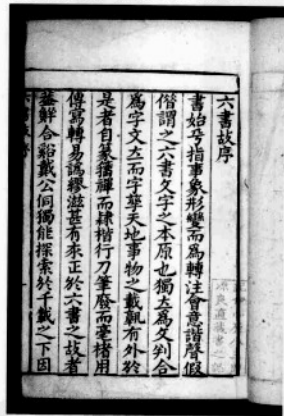 六書故序
書始乎指事象形變而為轉注會意諧聲假
借謂之六書文字之本原也獨立為文判合
為字文立而字孳天地事物之載靰有外於
是者自篆籀禪而隸楷行刀筆廢而毫楮用
傳寫轉易譌繆滋甚有來正於六書之故者
蓋鮮合谿戴公侗獨能探索於千載之下因